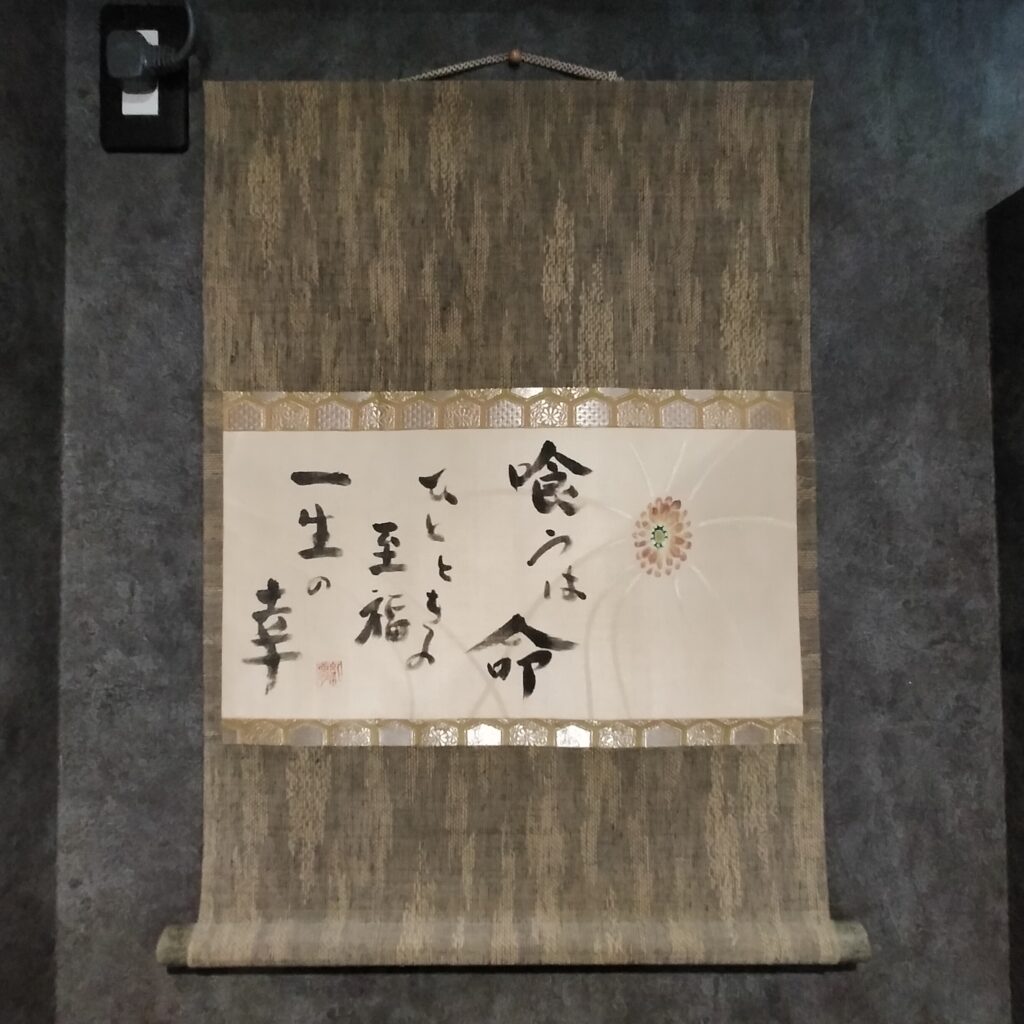 喰うは命
ひとときの
至福
一生の
幸